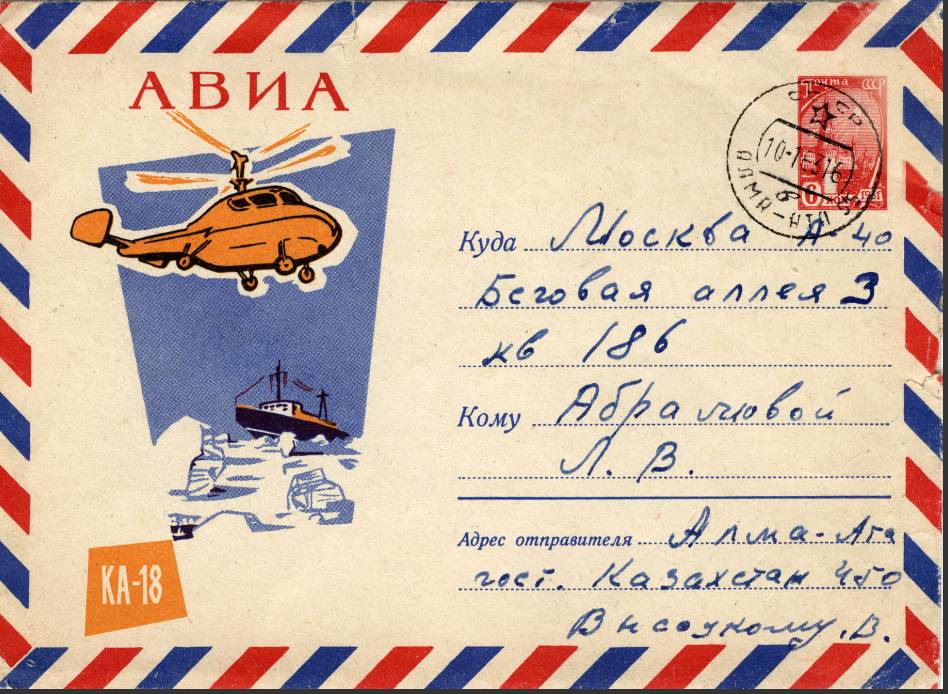 АВИА
Почта СССР
СССР
10-1 63 16
АЛМА-АТА
6 коп 1961
Куда Москва А-40
Беговая аллея 3
кв 186
Кому Абрамовой
Л. В.
Адрес отправителя Алма-Ата
гост. Казахстан 450
Высоцкому, В.
КА-18